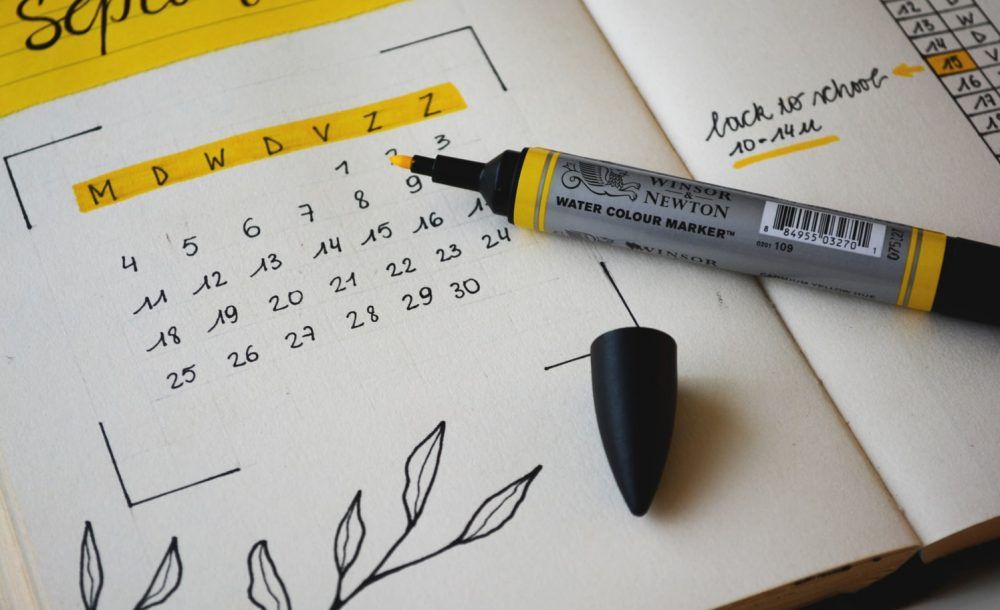 Septe
M D W D V Z Z
1 2 3
4 5 6 7 8 9
11 12 13 14 15 16
18 19 20 21 22 23 24
25 26 27 28 29 30
WINSOR
&
NEWTON
WATER COLOUR MARKER™
0201 109
8 84955 03270 1
WINSOR
CADMIUM YELLOW HUE
back to school
10-14u
12
13 W
14 D
15 V
16
17